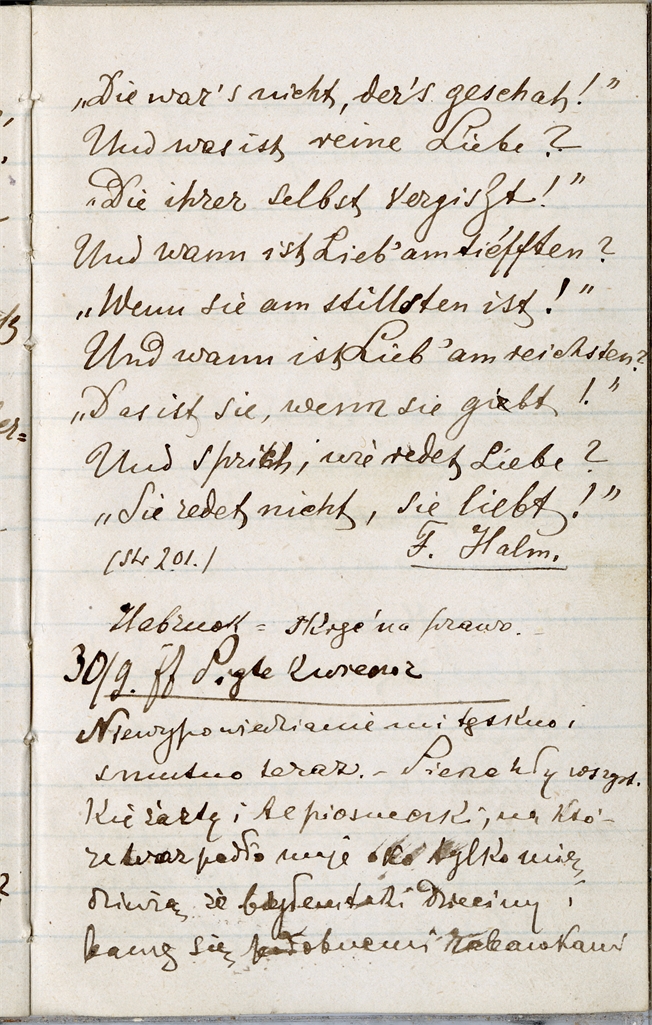 „Die war's nicht, der's geschah!”
Und was ist reine Liebe?
„Die ihrer selbst vergiszt!”
Und wann ist Lieb' am tiefften?
„Wenn sie am stillsten ist!”
Und wann ist Lieb' am reichsten?
„Das ist sie, wenn sie giebt!”
Und sprich, wie redet Liebe?
„Sie redet nicht, sie liebt!”
(str 201.) F. Halm.
= na prawo.
30/9.
Niewypowiedzianie mi tęskno i
smutno teraz. –
żarty i te piosneczki, na któ-
re teraz padło moje oko tylko mię
dziwią, że byłem taki dziecinny i
bawię się podobnemi zabawkami